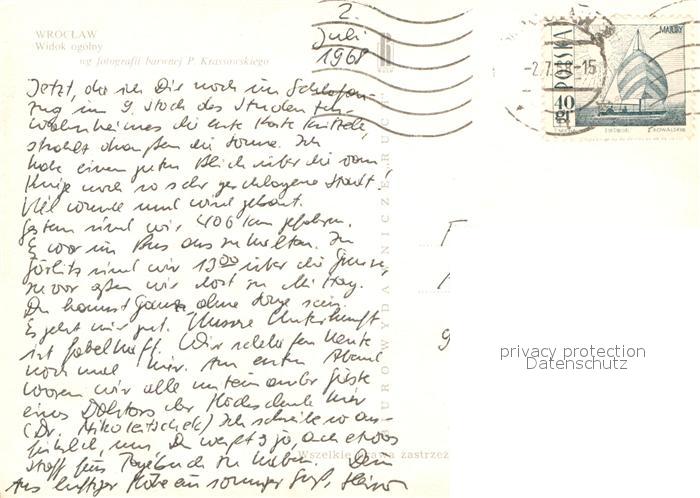 WROCŁAW
Widok ogólny
wg fotografii barwnej P. Krassowskiego
2.
Juli
1968
-2.7.68-15
POLSKA
40 gr
MAZURY
Z. KOWALSKI
Jetzt, da ich Dir noch im Schlafan-
zug im 9. Stock des Studenten
wohnheimes die erste Karte kritzele,
strahlt draußen die Sonne. Ich
habe einen guten Blick über die vom
Kriege noch so sehr geschlagene Stadt!
Viel wurde und wird gebaut.
Gestern sind wir 406 km gefahren.
Es war im Bus auszuhalten. In
Görlitz sind wir 13.00 über die Grenze,
zuvor aßen wir dort zu Mittag.
Du kannst ganz ohne Sorge sein.
Es geht mir gut. Unsere Unterkunft
ist fabelhaft. Wir schlafen heute
noch mal hier. Am ersten Abend
waren wir alle untereinander Gäste
eines Doktors der Hochschule hier
Ich schreibe so aus-
führlich, um, Du weißt's ja, auch etwas
Stoff fürs Tagebuch zu haben. Dein
Aus luftiger Höhe ein sonniger
BIURO WYDAWNICZE RUCH
Wszelkie prawa zastrzeż
privacy protection
Datenschutz